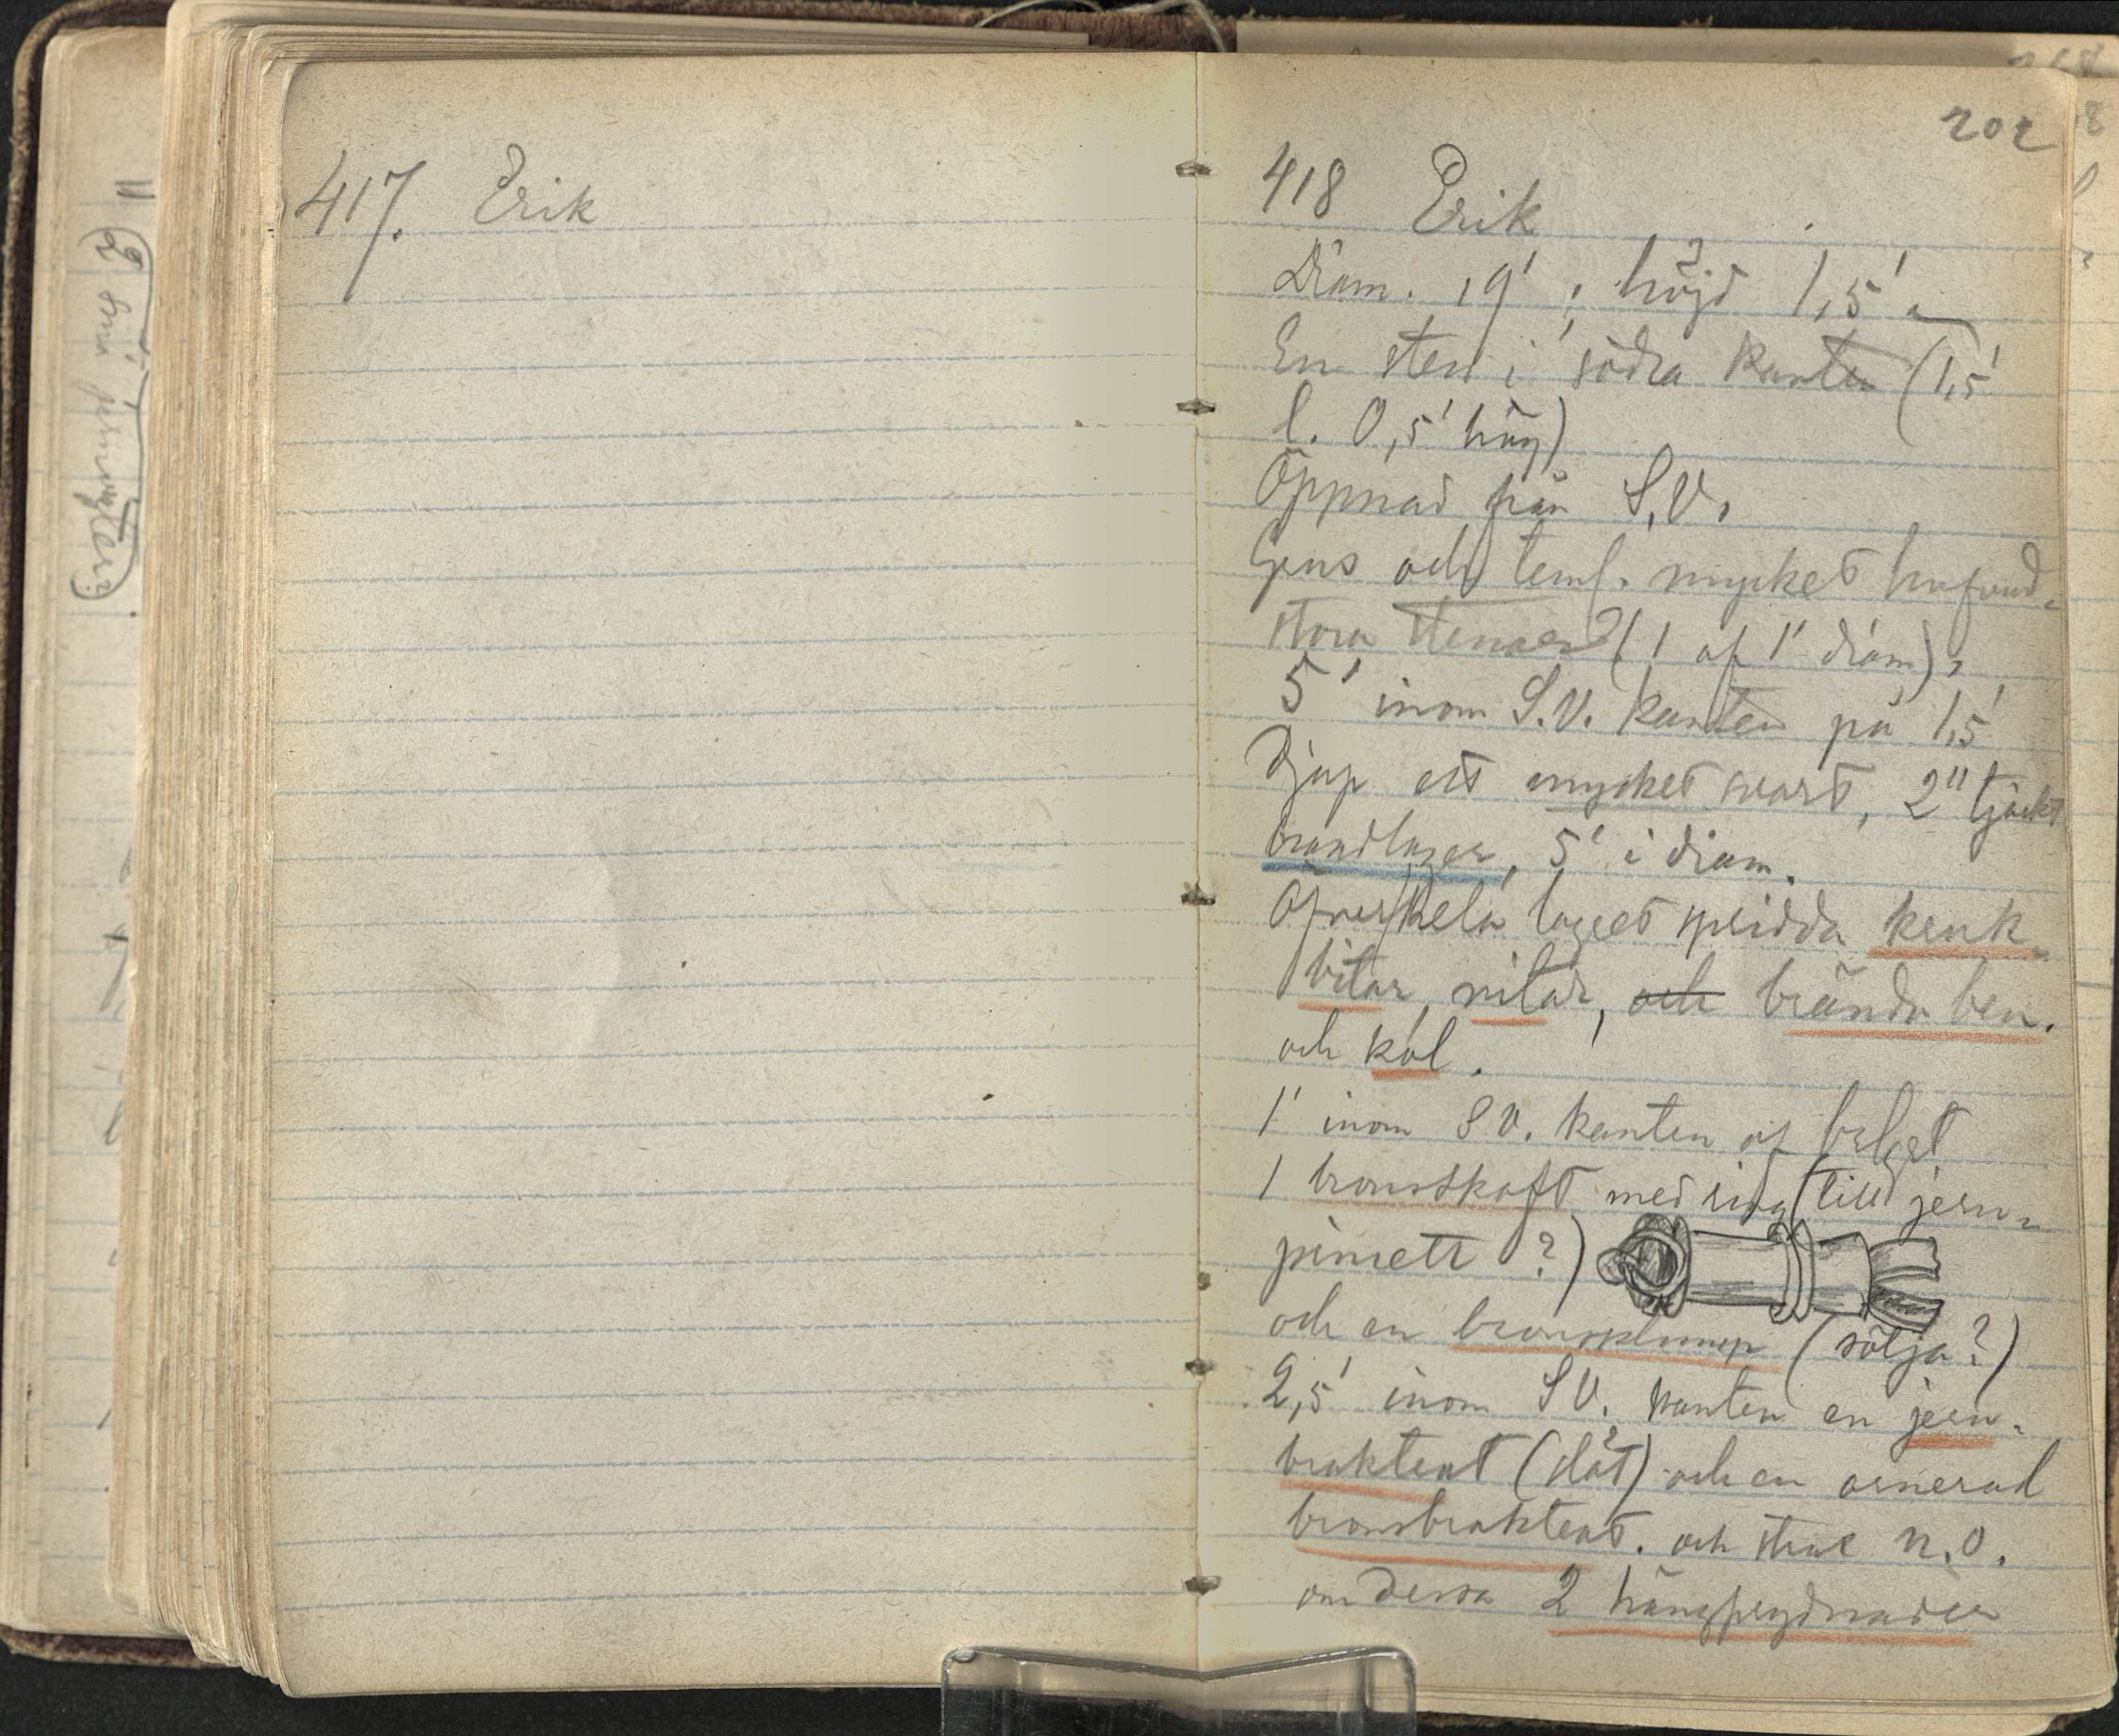 417. Erik
202
418 Erik
Diam. 19'; höjd 1,5'
En sten i södra kanten (1,5'
l. 0,5' hög)
Öppnad från S.V.
Grus och teml. mycket hufvud-
stora stenar (1 af 1' diam),
5' inom S.V. kanten på 1,5'
djup ett mycket svart, 2" tjockt
brandlager, 5' i diam.
Öfver hela lagret spridda kruk-
bitar, nitar, och brända ben.
och kol.
1' inom S.V. kanten af
1 bronsskaft med ring (till jern-
pincett?)
och en bronsklump (sölja?)
2,5' inom S V. kanten en jern-
brakteat (slät) och en ornerad
bronsbrakteat. och strax N.O.
om dessa 2 hängprydnader
(2 små jernnycklar?)